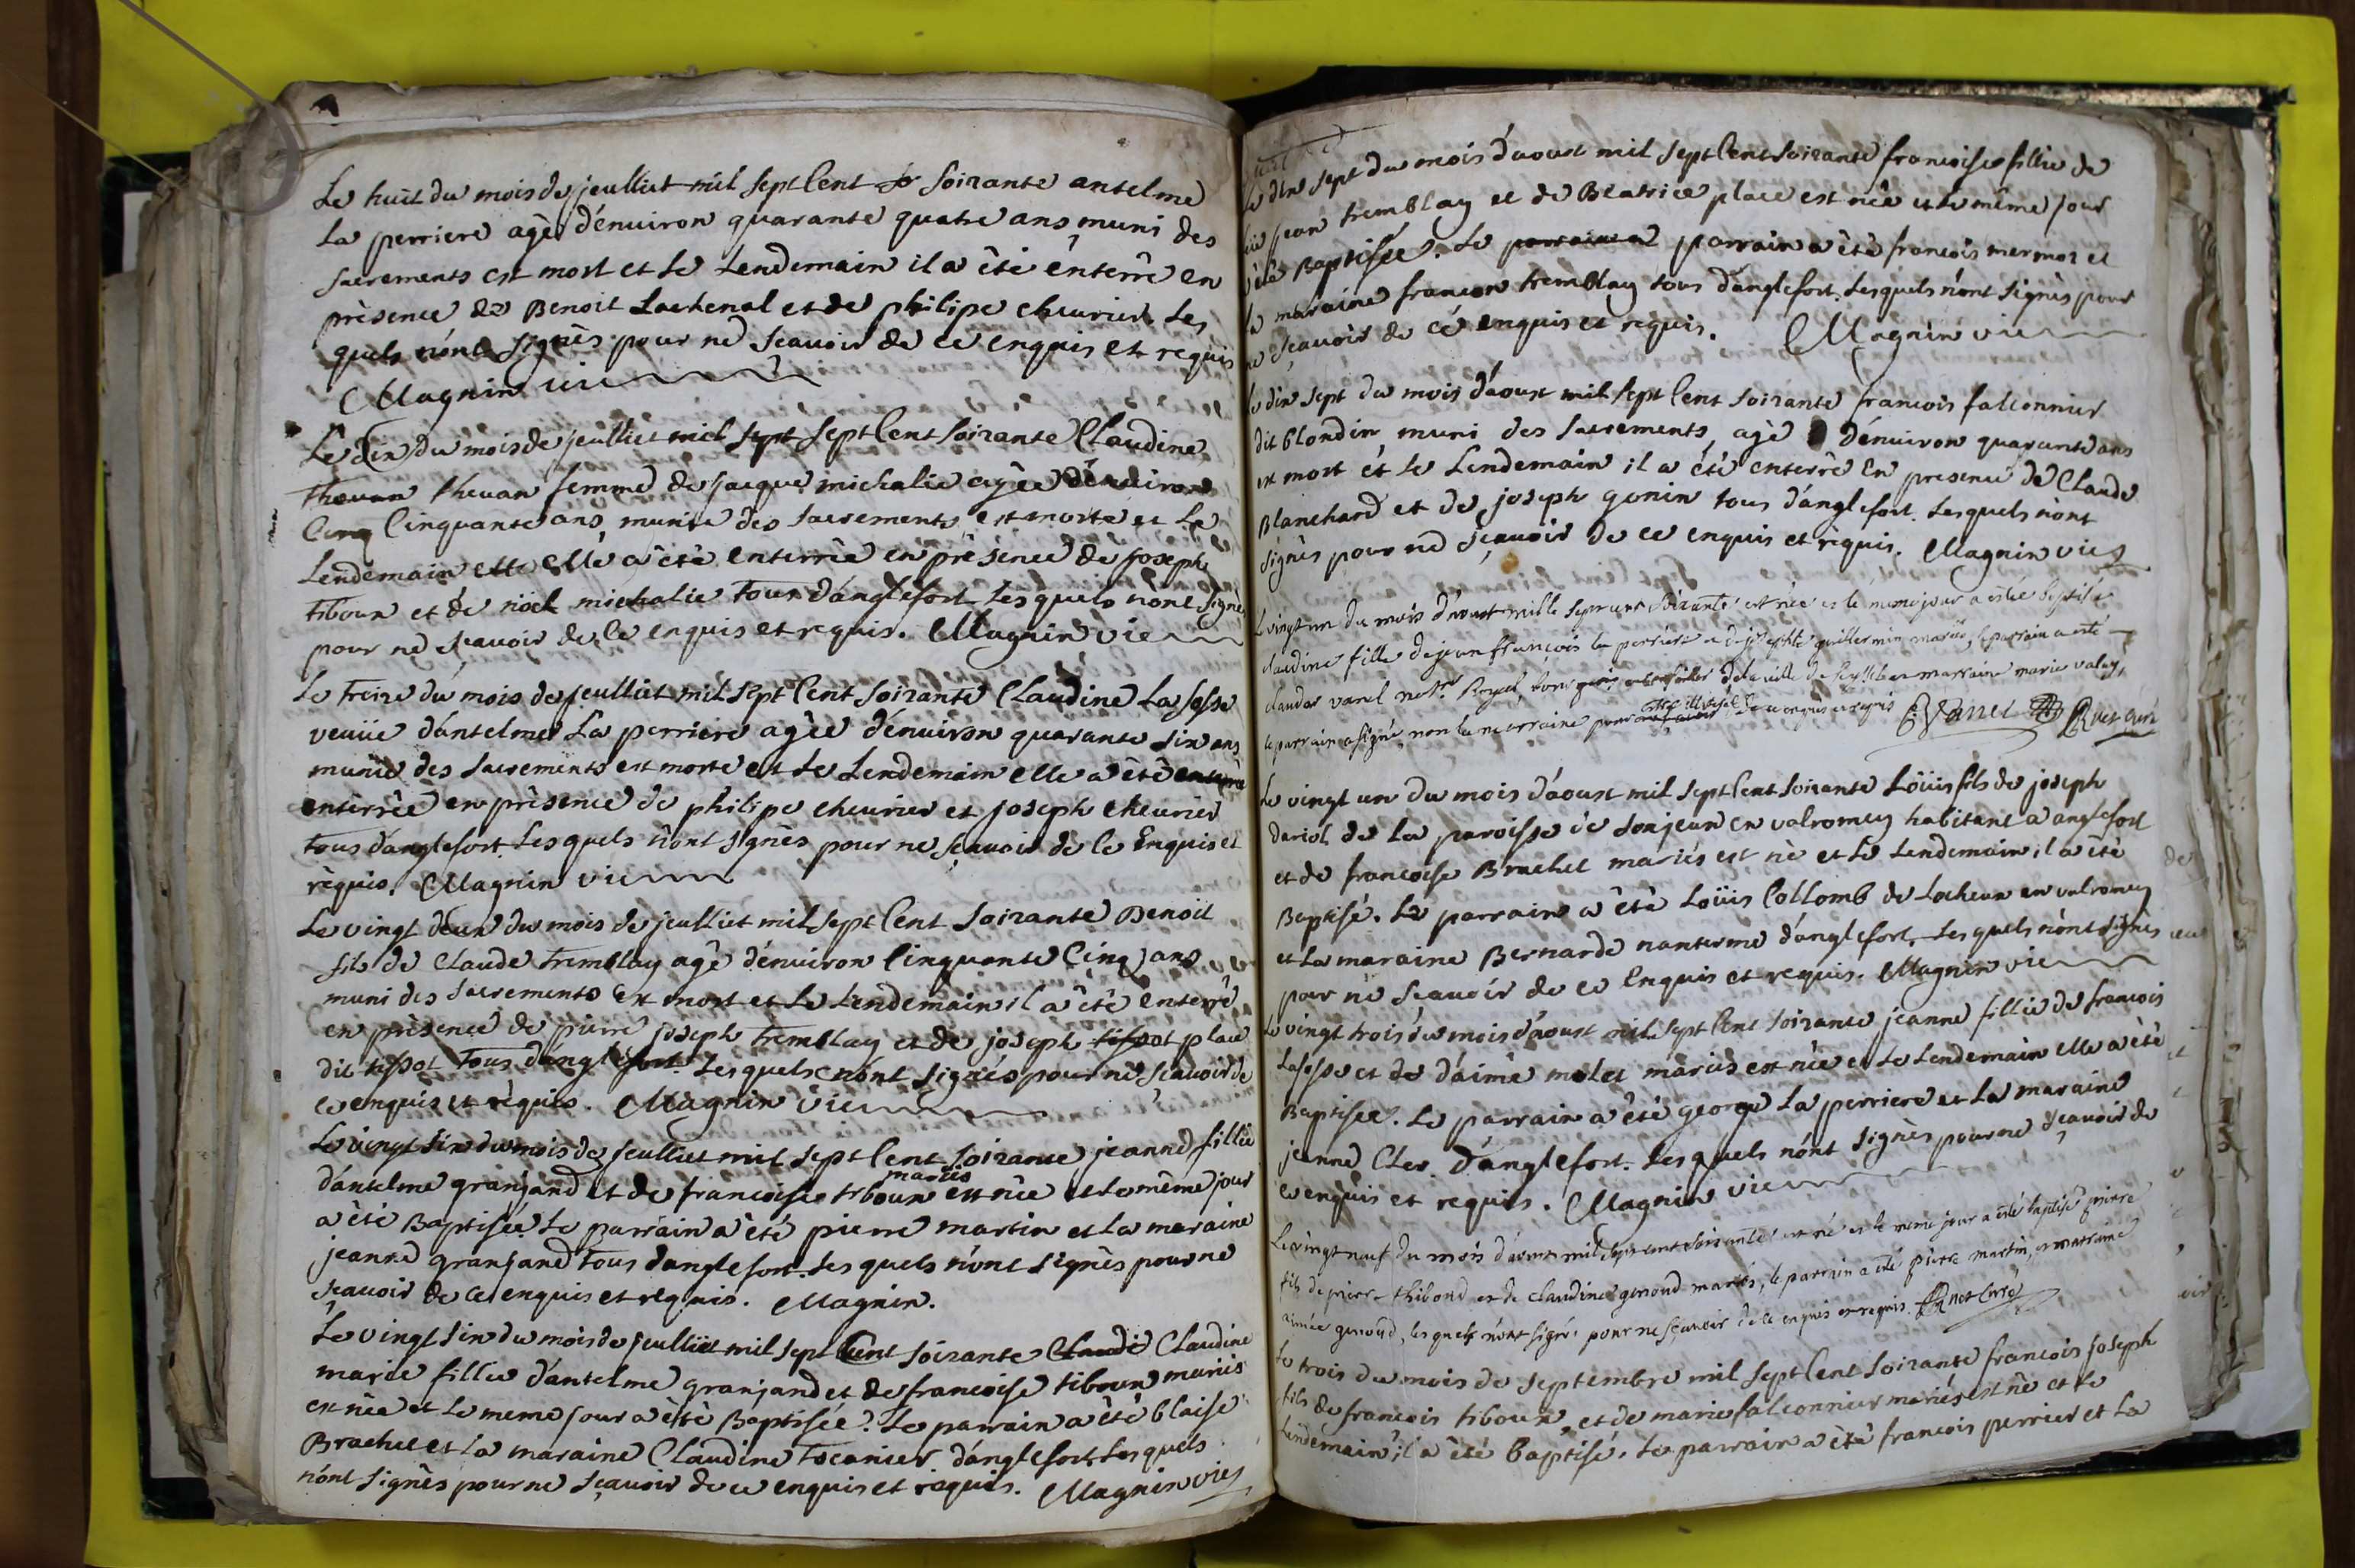 Le huit du mois de jeulliet mil sept Cent so soixante antelme
La perriere agè d'énuiron quarante quatre ans muni des
sacrements est mort et Le Lendemain il a êté énterré en
présence de Benoit Lachenal et de philipe cheurier Les
quels n'ont signés pour ne sçauoir de ce enquis et requis
Magnin vic
Le dix du mois de jeulliet mil sept sept Cent soixante Claudine
theuan theuan femme de jacque michalie agée d'énuiron
Cinq Cinquante ans munie des sacrements est morte et Le
Lendemain elle elle a été enterrée en présence de joseph
tiboux et de nöel michalie tous d'anglefort Lesquels n'ont signés
pour ne sçauoir de Ce enquis et requis. Magnin vic
Le treize du mois de jeulliet mil sept Cent soixante Claudine Lasasse
veuüe d'antelme La perriere agée d'énuiron quarante six ans
munie des sacrements est morte et Le Lendemain elle a êté enterré
enterrée en présence de philipe cheurier et joseph cheurier
tous d'anglefort Les quels n'ont signés pour ne sçauoir de Ce Enquis et
requis. Magnin vic
Le vingt deux du mois de jeulliet mil sept Cent soixante Benoit
fils de Claude tremblay agé d'énuiron Cinquante Cinq ans
muni des sacrements est mort et Le Lendemain il a êté enterré
en présence de pierre joseph tremblay et de joseph tissot place
dit tissot tous d'anglefort Les quels n'ont signés pour ne sçauoir de
ce enquis et requis. Magnin vic
Le vingt six du mois de jeulliet mil sept Cent soixante jeanne fillie
mariés
d'antelme granjand et de francoise tiboux est née et Le même jour
a été Baptisée Le parrain a été pierre martin et La maraine
jeanne granjand tous d'anglefort. Les quels n'ont signés pour ne
sçauoir de Ce enquis et requis. Magnin.
Le vingt six du mois de jeulliet mil sept Cent soixante Claudi Claudine
marie fillie d'antelme granjand et de francoise tiboux mariés
est née et Le meme jour a êtè Baptisée. Le parrain a êté blaise
Brachet et La maraine Claudine tocanier d'anglefort Les quels
n'ont signés pour ne sçauoir de ce enquis et requis. Magnin vic
Le dix sept du mois d'aoust mil sept Cent soixante francoise fillie de
jean tremblay et de Beatrice place est née et Le même jour
a êté Baptisée. Le parrain a parrain a été francois mermoz et
La maraine francon tremblay tous d'anglefort. Lesquels n'ont signés pour
ne sçauoir de cé enquis et requis. Magnin vic
Le dix sept du mois d'aoust mil sept Cent soixante francois falconnier
dit blondin muni des sacrements, agé d'énuiron quarante ans
est mort ét Le Lendemain il a été enterré En presence de Claude
Blanchard et de joseph gonin tous d'anglefort. Lesquels n'ont
signés pour ne sçauoir de ce enquis et réquis. Magnin vic
Le vingt un du mois d'aoust mille sept cent soixante est née et le meme jour a estée baptisée
claudine fille de jean françois la perriere et de josephte guillermin mariés, le parrain a esté
claudas varel nottre Royal, de la ville de Seyssel et marraine marie valay,
le parrain a signé non la marraine pour de ce enquis et requis
Le vingt un du mois d'aoust mil sept Cent soixante Loüis fils de joseph
dariot de La paroisse de sonjeux en valromey habitant a anglefort
et de francoise Brachet mariés est né et Le Lendemain il a êté
Baptisé. Le parrain a êté Loüis Collomb de Locheux en valromey
et La maraine Bernarde nanterme d'anglefort. Les quels n'ont signés
pour ne sçauoir de ce Enquis et requis. Magnin vic
Le vingt trois du mois d'aoust mil sept Cent soixante jeanne fillie de francois
Lasasse et de d'aimé molet mariés est née et Le Lendemain elle a êtè
Baptisée. Le parrain a êté george La perriere et La maraine
jeanne Cler d'anglefort. Les quels n'ont signés pour ne sçauoir de
ce enquis et requis. Magnin vic
Le vingt neuf du mois d'aoust mil sept cent soixante est né et le meme jour a esté baptisé pierre
fils de pierre thiboud et de claudine genoud mariés, le parrain a été pierre martin, et marraine
aimée genoud, les quels n'ont signé pour ne sçavoir de ce enquis et requis.
Le trois du mois de septembre mil sept Cent soixante francois joseph
fils de francois tiboux, et de marie falconnier mariés est né et Le
Lendemain il a été baptisé. Le parrain a êtè francois perrier et La